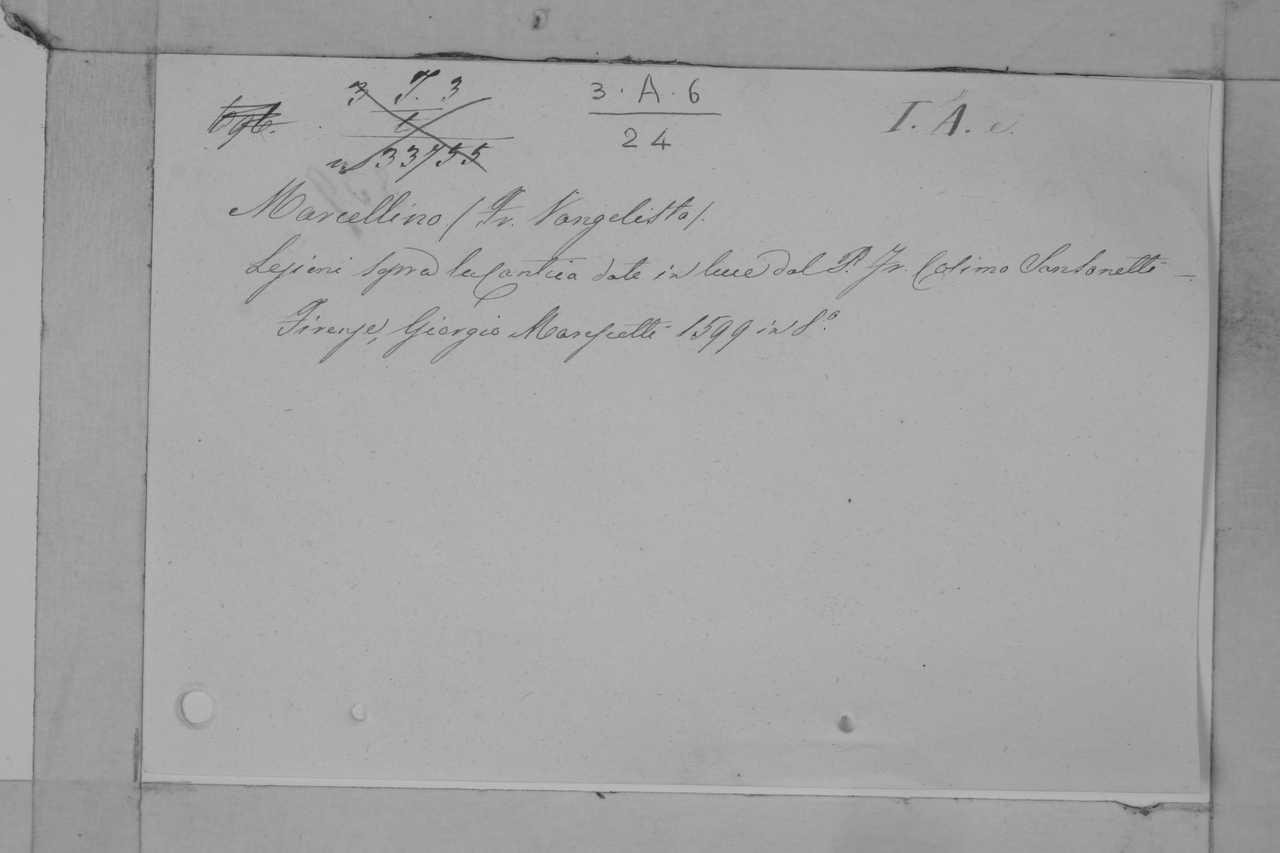 3 T. 3
3 · A · 6
I. A. c.
24
33755
Marcellino (Fr. Vangelista).
Lezioni sopra la Cantica date in luce dal P. Fr. Cosimo Sansonetti —
Firenze, Giorgio Marescotti 1599 in 8.º